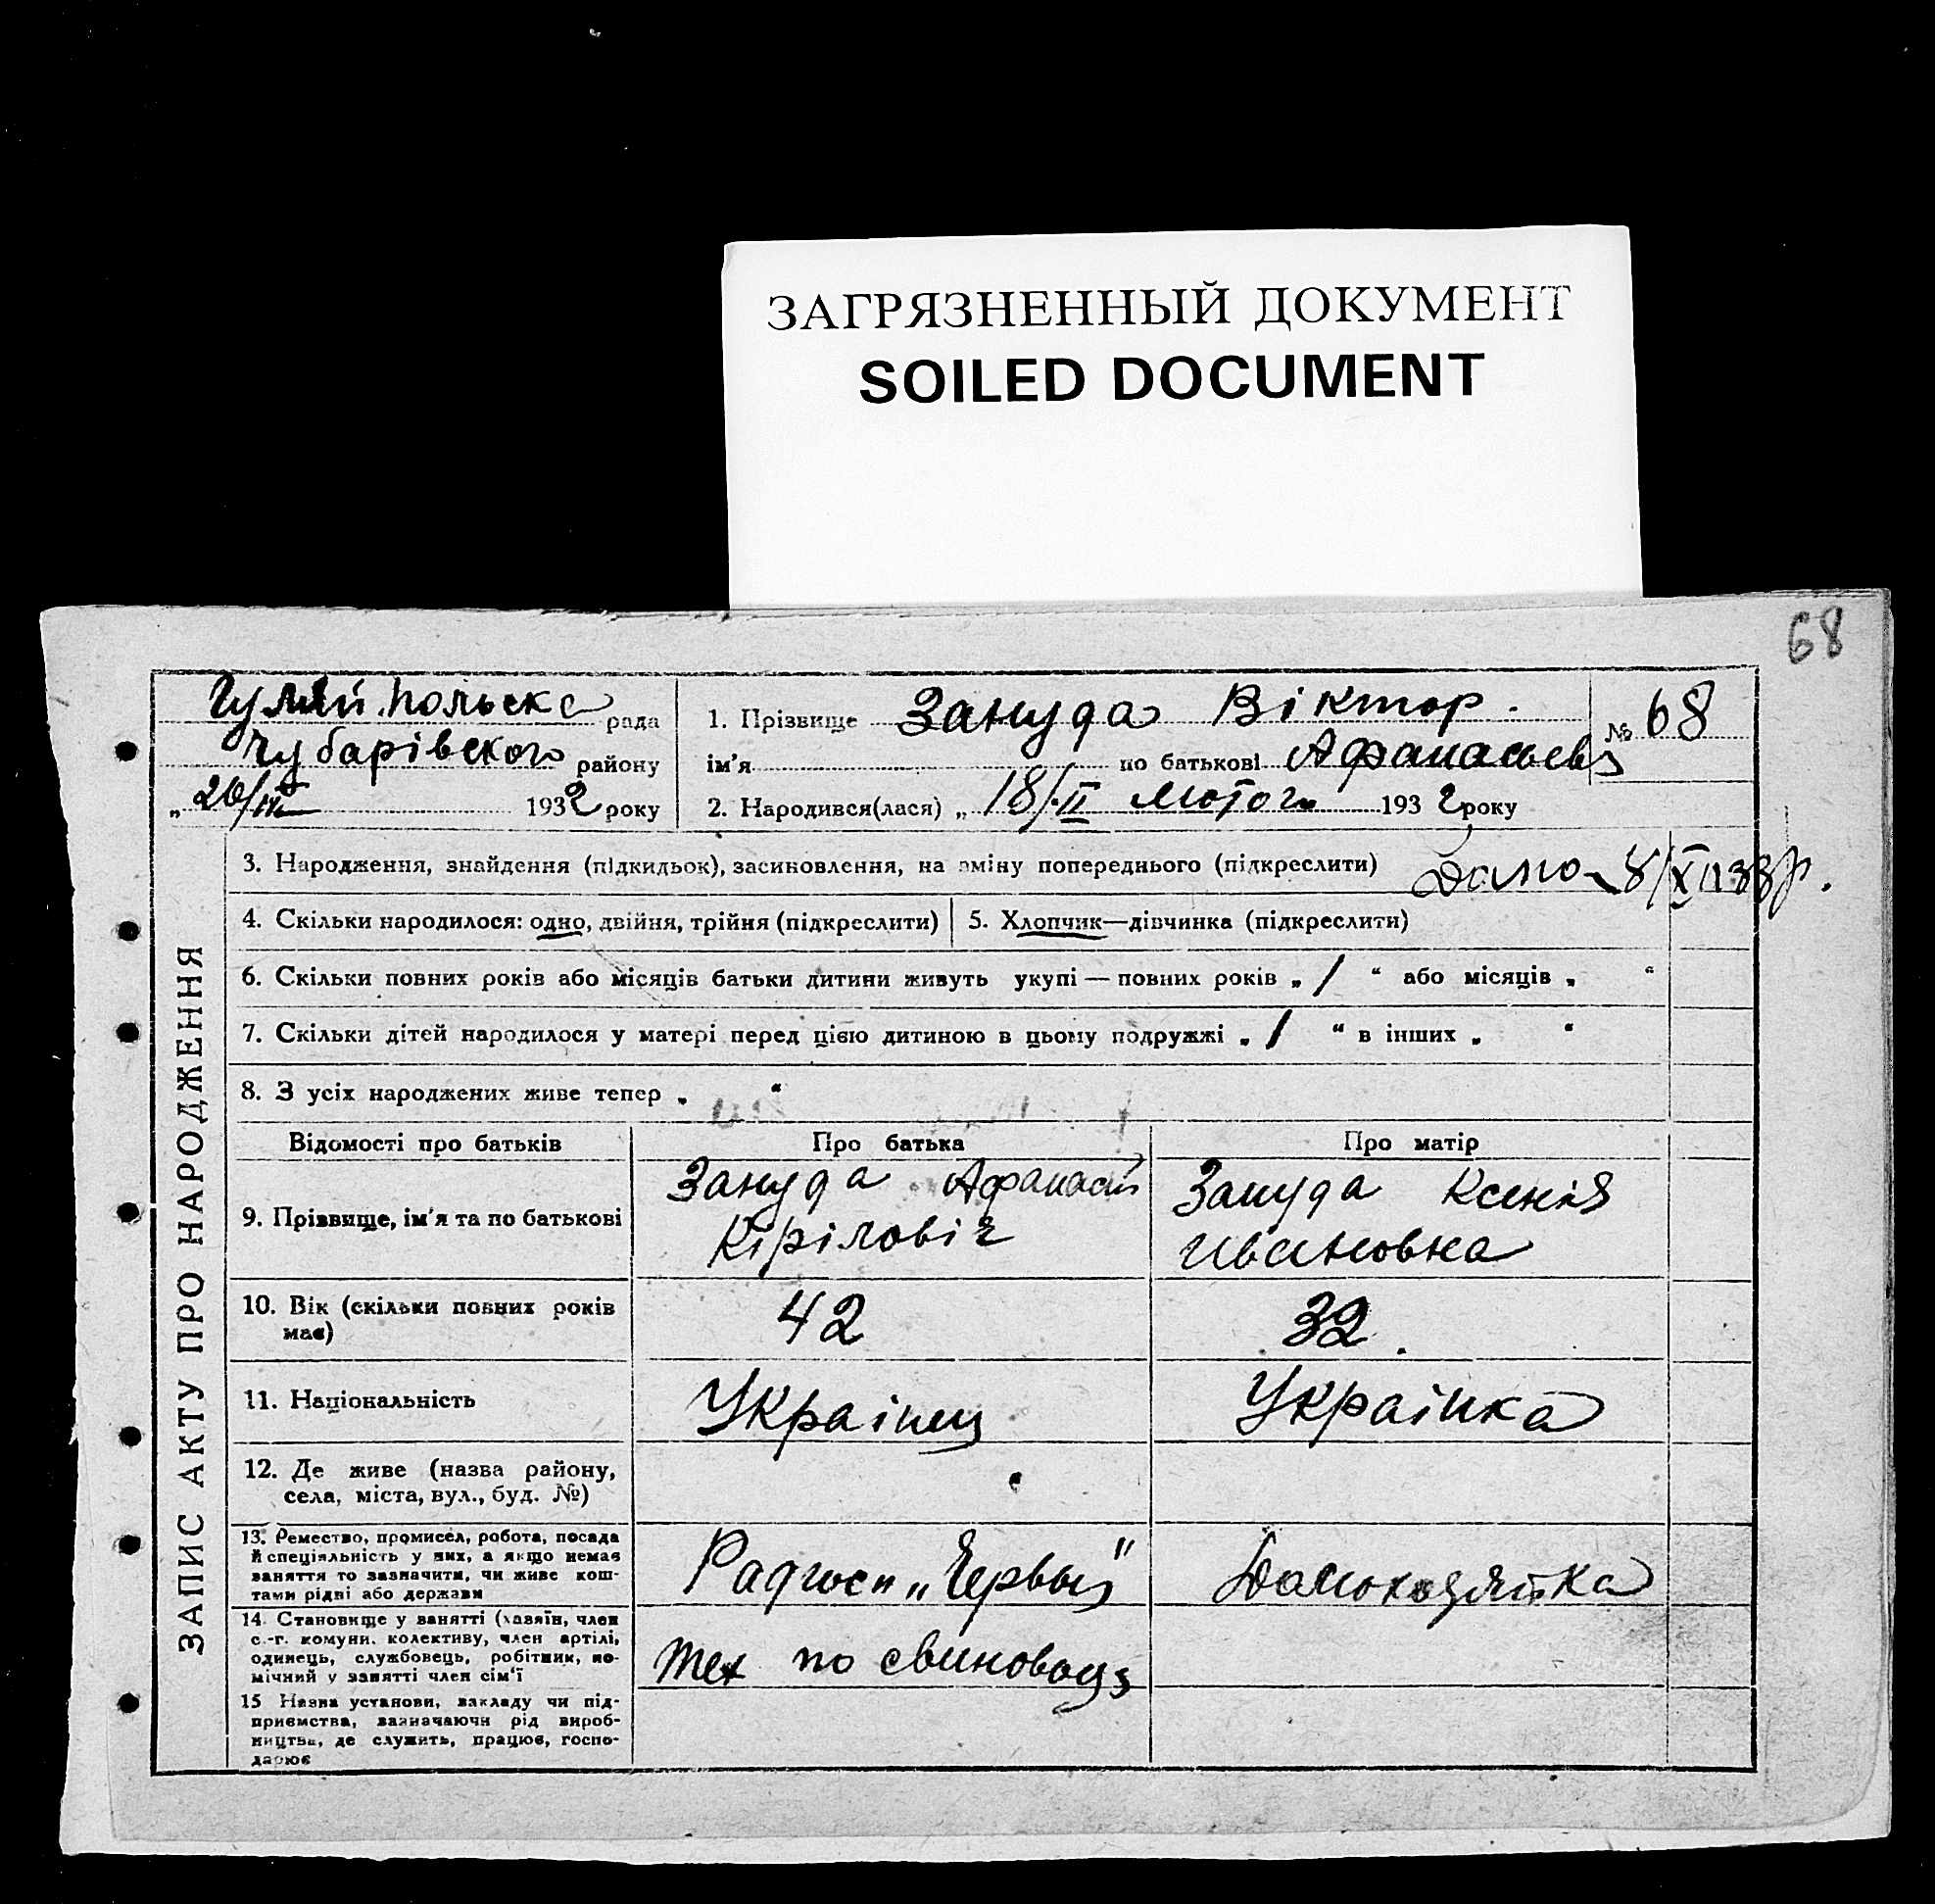 ЗАГРЯЗНЕННЫЙ ДОКУМЕНТ
SOILED DOCUMENT
68
Гуляй.польска рада
Чубарівского району
„ 1932 року
1. Прізвище Зануда Віктор. № 68
ім’я по батькові Афанасьев
2. Народився(лася) „ 18/.II лютого 1932 року
3. Народження, знайдення (підкидьок), засиновлення, на зміну попереднього (підкреслити)
4. Скільки народилося: одно, двійня, трійня (підкреслити) 5. Хлопчик—дівчинка (підкреслити)
6. Скільки повних років або місяців батьки дитини живуть укупі — повних років „ / “ або місяців „ “
7. Скільки дітей народилося у матері перед цією дитиною в цьому подружжі „ / “ в інших „ “
8. З усіх народжених живе тепер „ “
ЗАПИС АКТУ ПРО НАРОДЖЕННЯ
Відомості про батьків Про батька Про матір
9. Прізвище, ім’я та по батькові
Зануда Афанасій
Кірілові­ч
Зануда Ксенія
Ивановна
10. Вік (скільки повних років
має)
42 32.
11. Національність Украінец Украінка
12. Де живе (назва району,
села, міста, вул., буд. №)
13. Ремество, промисел, робота, посада
й спеціяльність у них, а якщо немає
заняття то зазначити, чи живе кош-
тами рідні або держави
Домохозяйка
14. Становище у занятті (хазяїн, член
с.-г. комуни, колективу, член артілі,
одинець, службовець, робітник, по-
мічний у занятті член сім‘ї
тех по свиновод
15 Назва установи, закладу чи під-
приємства, зазначаючи рід вироб-
ництва, де служить, працює, госпо-
дарює